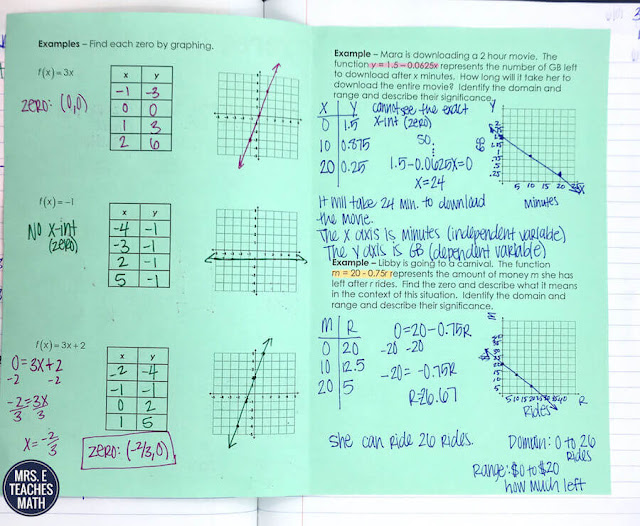 Examples – Find each zero by graphing.
f(x) = 3x
zero: (0,0)
x y
-1 -3
0 0
1 3
2 6
f(x) = -1
No x-int
(zero)
x y
-4 -1
-3 -1
2 -1
5 -1
f(x) = 3x + 2
0 = 3x+2
-2 -2
-2/3 = 3x/3
x = -2/3
x y
-2 -4
-1 -1
0 2
1 5
zero: (-2/3, 0)
MRS. E
TEACHES
MATH
Example – Mara is downloading a 2 hour movie. The
function y = 1.5 – 0.0625x represents the number of GB left
to download after x minutes. How long will it take her to
download the entire movie? Identify the domain and
range and describe their significance.
X Y
0 1.5
10 0.875
20 0.25
cannot see the exact
x-int (zero)
so
1.5-0.0625x=0
x=24
Y
GB
5 10 15 20 25 X
Minutes
It will take 24 min. to download
the movie.
The x axis is minutes (independent variable)
The y axis is GB (dependent variable)
Example – Libby is going to a carnival. The function
m = 20 - 0.75r represents the amount of money m she has
left after r rides. Find the zero and describe what it means
in the context of this situation. Identify the domain and
range and describe their significance.
M R
0 20
10 12.5
20 5
0=20-0.75R
-20 -20
-20 = -0.75R
R=26.67
M
$
5 10 15 20 25 30 35 40 R
Rides
She can ride 26 rides.
Domain: 0 to 26
Rides
Range: $0 to $20
how much left